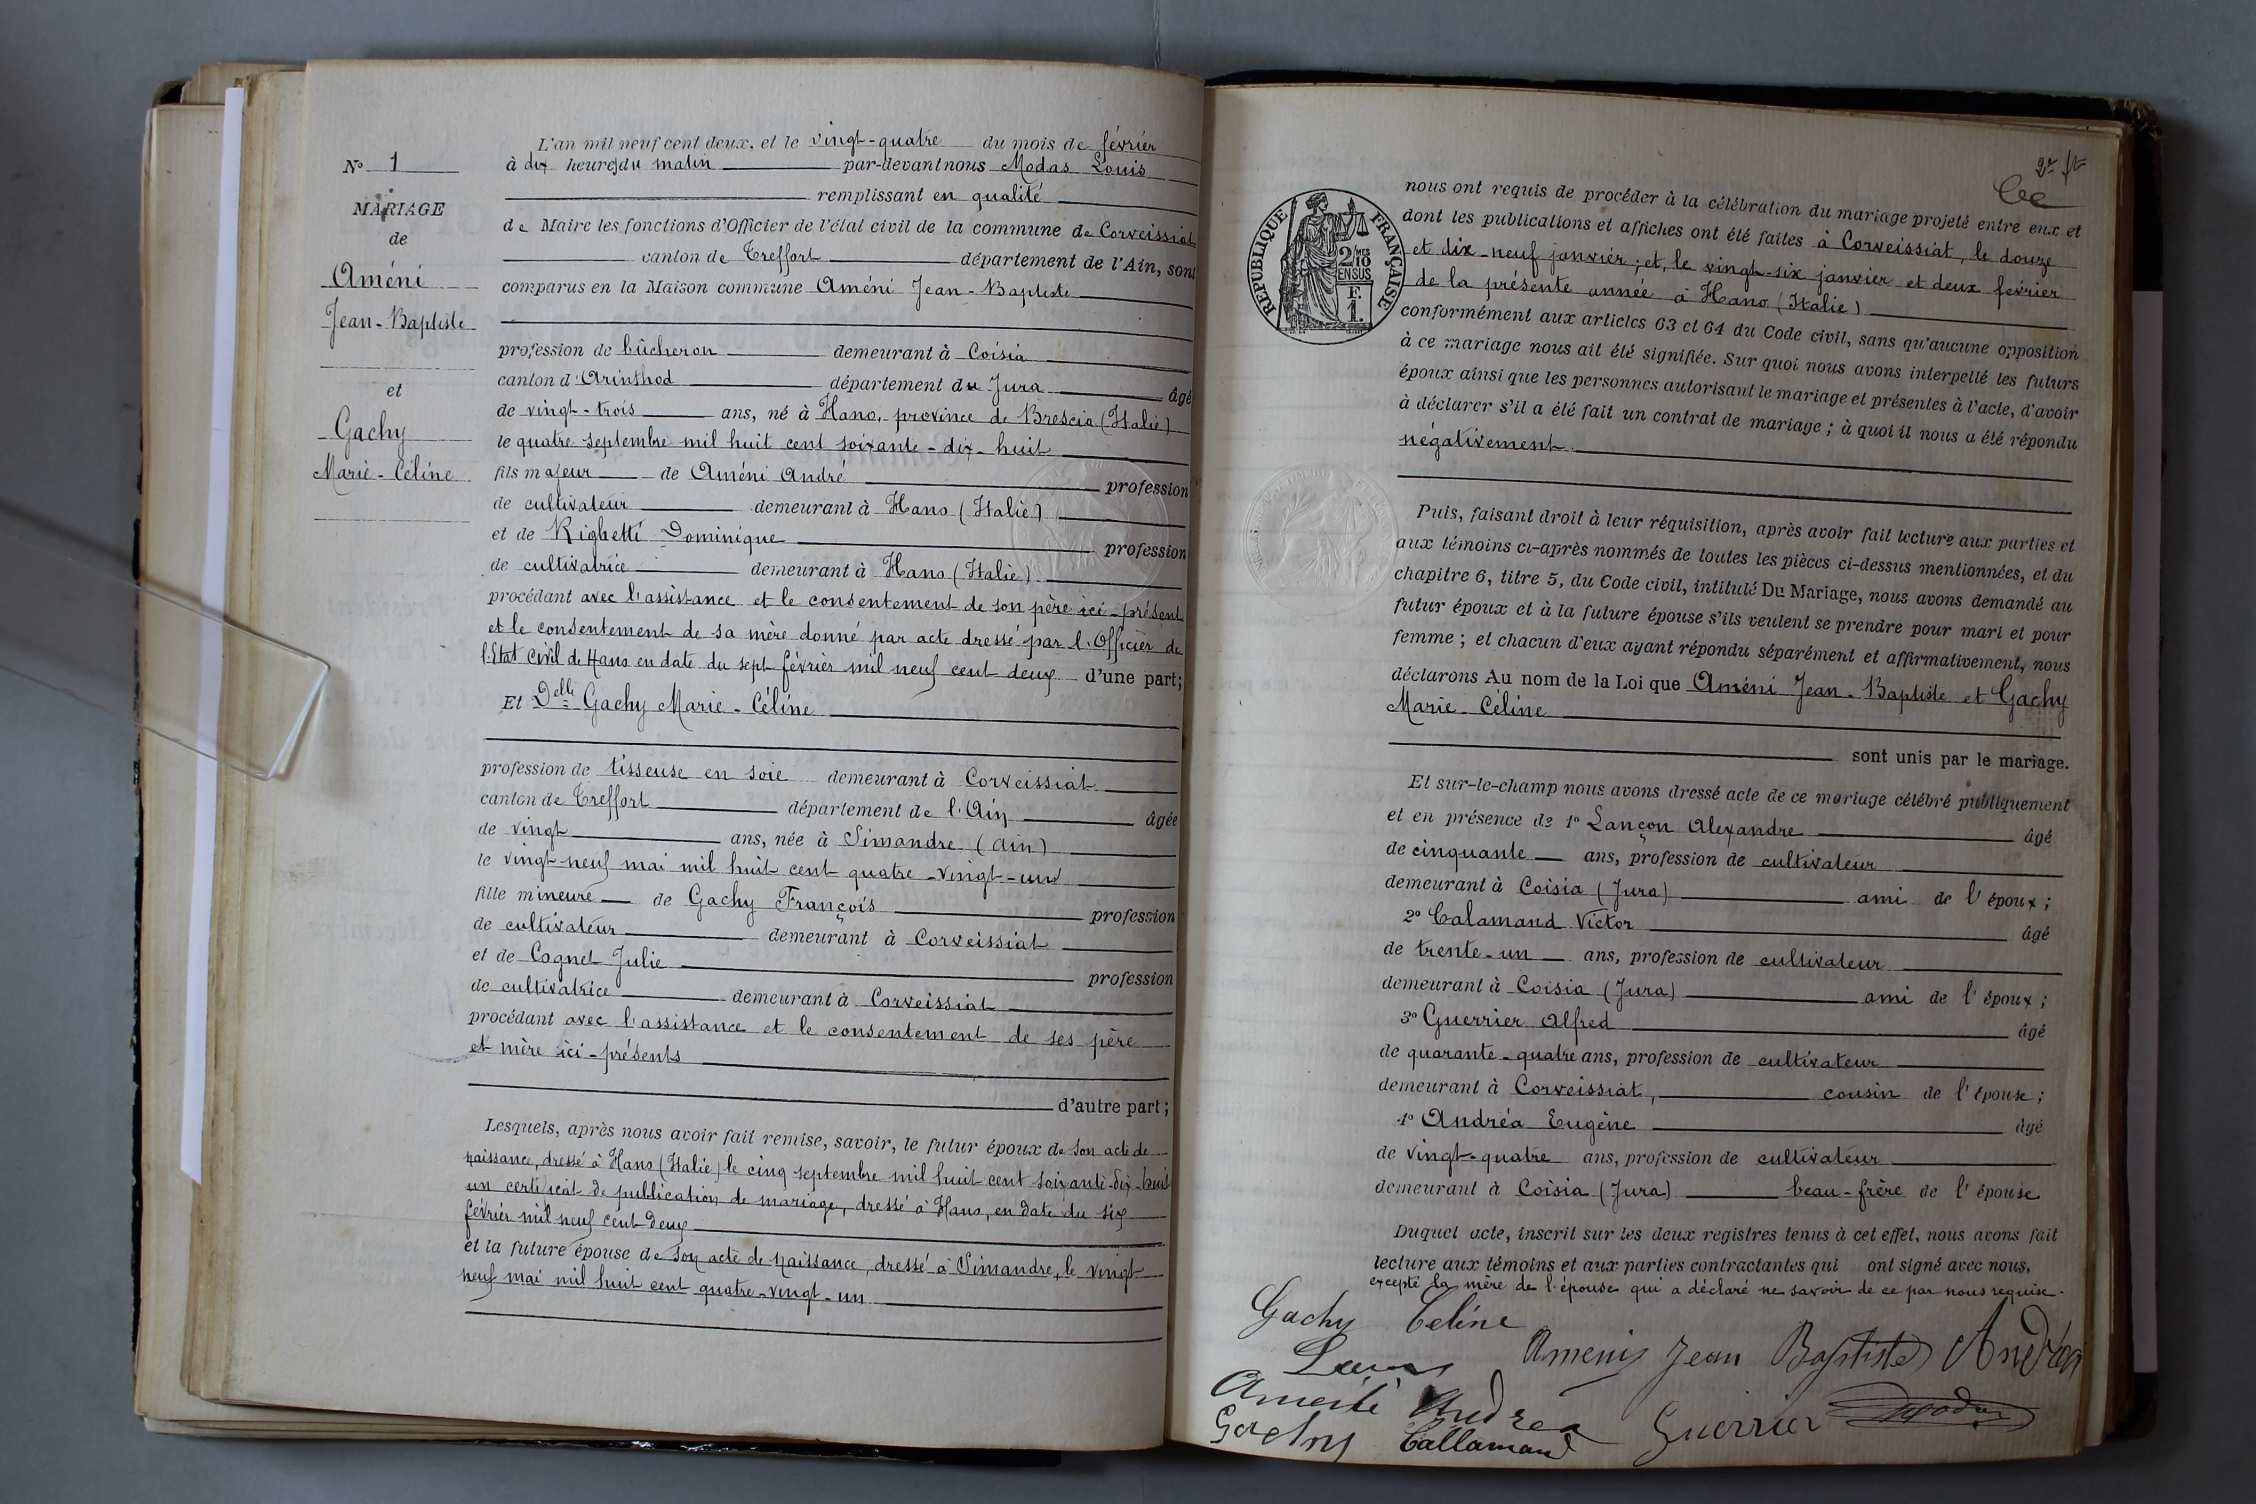 L'an mil neuf cent deux, et le vingt-quatre du mois de février
No 1
à dix heures du matin par-devant nous Modas Louis
remplissant en qualité
MARIAGE
de Maire les fonctions d'Officier de l'état civil de la commune de Corveissiat
de
canton de Treffort département de l'Ain, sont
Améni
comparus en la Maison commune Améni Jean-Baptiste
Jean-Baptiste
profession de bûcheron demeurant à Coisia
et
canton d'Arinthod département du Jura âgé
de vingt-trois ans, né à Hano, province de Brescia (Italie)
Gachy
le quatre septembre mil huit cent soixante-dix-huit
Marie-Céline
fils majeur de Améni André profession
de cultivateur demeurant à Hano (Italie)
et de Righetti Dominique profession
de cultivatrice demeurant à Hano (Italie)
procédant avec l'assistance et le consentement de son père ici-présent
et le consentement de sa mère donné par acte dressé par l'Officier de
l'Etat Civil de Hano en date du sept février mil neuf cent deux d'une part;
Et Delle Gachy Marie-Céline
profession de tisseuse en soie demeurant à Corveissiat
canton de Treffort département de l'Ain âgée
de vingt ans, née à Simandre (Ain)
le vingt-neuf mai mil huit cent quatre-vingt-un
fille mineure de Gachy François profession
de cultivateur demeurant à Corveissiat
et de Cognet Julie profession
de cultivatrice demeurant à Corveissiat
procédant avec l'assistance et le consentement de ses père
et mère ici-présents
d'autre part;
Lesquels, après nous avoir fait remise, savoir, le futur époux de son acte de
naissance, dressé à Hano (Italie) le cinq septembre mil huit cent soixante-dix-huit
un certificat de publication de mariage, dressé à Hano, en date du six
février mil neuf cent deux
et la future épouse de son acte de naissance, dressé à Simandre, le vingt
neuf mai mil huit cent quatre-vingt-un
REPUBLIQUE FRANÇAISE
2/10 MES
EN SUS
F.
1.
nous ont requis de procéder à la célébration du mariage projeté entre eux et
dont les publications et affiches ont été faites à Corveissiat, le douze
et dix-neuf janvier; et, le vingt-six janvier et deux février
de la présente année à Hano (Italie)
conformément aux articles 63 et 64 du Code civil, sans qu'aucune opposition
à ce mariage nous ait été signifiée. Sur quoi nous avons interpellé les futurs
époux ainsi que les personnes autorisant le mariage et présentes à l'acte, d'avoir
à déclarer s'il a été fait un contrat de mariage; à quoi il nous a été répondu
négativement.
Puis, faisant droit à leur réquisition, après avoir fait lecture aux parties et
aux témoins ci-après nommés de toutes les pièces ci-dessus mentionnées, et du
chapitre 6, titre 5, du Code civil, intitulé Du Mariage, nous avons demandé au
futur époux et à la future épouse s'ils veulent se prendre pour mari et pour
femme; et chacun d'eux ayant répondu séparément et affirmativement, nous
déclarons Au nom de la Loi que Améni Jean-Baptiste et Gachy
Marie-Céline
sont unis par le mariage.
Et sur-le-champ nous avons dressé acte de ce mariage célébré publiquement
et en présence de 1o Lançon Alexandre âgé
de cinquante ans, profession de cultivateur
demeurant à Coisia (Jura) ami de l'époux;
2o Calamand Victor âgé
de trente-un ans, profession de cultivateur
demeurant à Coisia (Jura) ami de l'époux;
3o Guerrier Alfred âgé
de quarante-quatre ans, profession de cultivateur
demeurant à Corveissiat, cousin de l'épouse;
4o Andréa Eugène âgé
de vingt-quatre ans, profession de cultivateur
demeurant à Coisia (Jura) beau-frère de l'épouse
Duquel acte, inscrit sur les deux registres tenus à cet effet, nous avons fait
lecture aux témoins et aux parties contractantes qui ont signé avec nous,
excepté la mère de l'épouse qui a déclaré ne savoir de ce par nous requise.
Gachy Celine
Amenis Jean Baptiste Andréa
Andrea
Gachy Callamand Guerrier